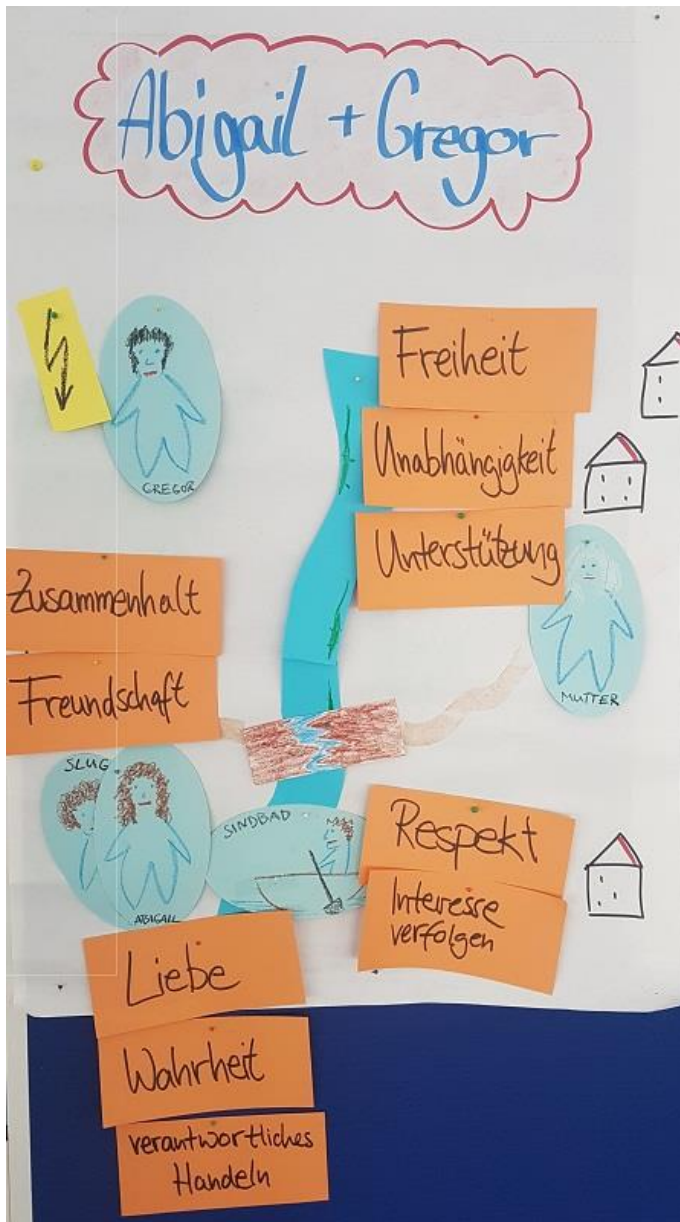 Abigail + Gregor
Freiheit
Unabhängigkeit
GREGOR
Unterstützung
Zusammenhalt
Freundschaft
MUTTER
SLUG
ABIGAIL
SINDBAD
Respekt
Interesse
verfolgen
Liebe
Wahrheit
verantwortliches
Handeln